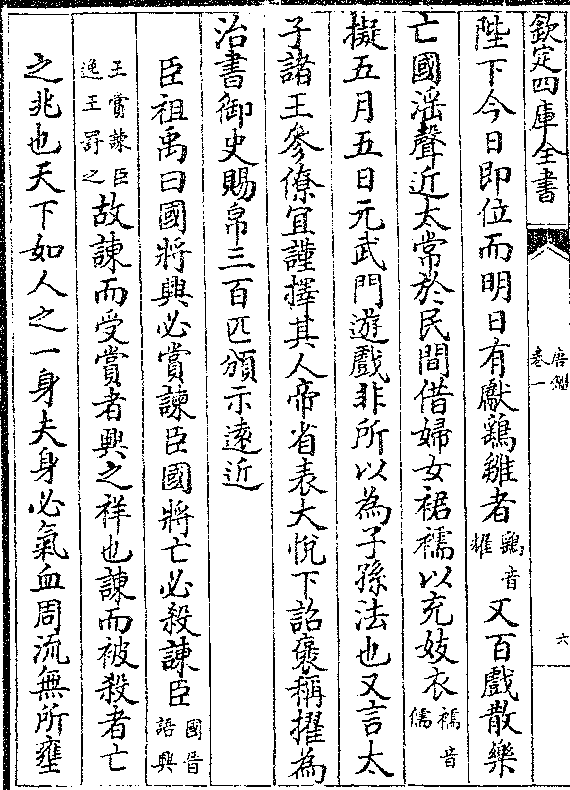 欽定四庫全書
唐鑑
卷一
六
陛下今日即位而明日有獻鷂雛者鷂音耀又百戲散樂
亡國滛聲近太常於民間借婦女裙襦以充妓衣襦音儒
擬五月五日元武門遊戲非所以為子孫法也又言太
子諸王參僚宜謹擇其人帝省表大悅下詔褒稱擢為
治書御史賜帛三百匹頒示遠近
臣祖禹曰國將興必賞諫臣國將亡必殺諫臣國晉語興
王賞諫臣逸王罰之故諫而受賞者興之祥也諫而被殺者亡
之兆也天下如人之一身夫身必氣血周流無所壅